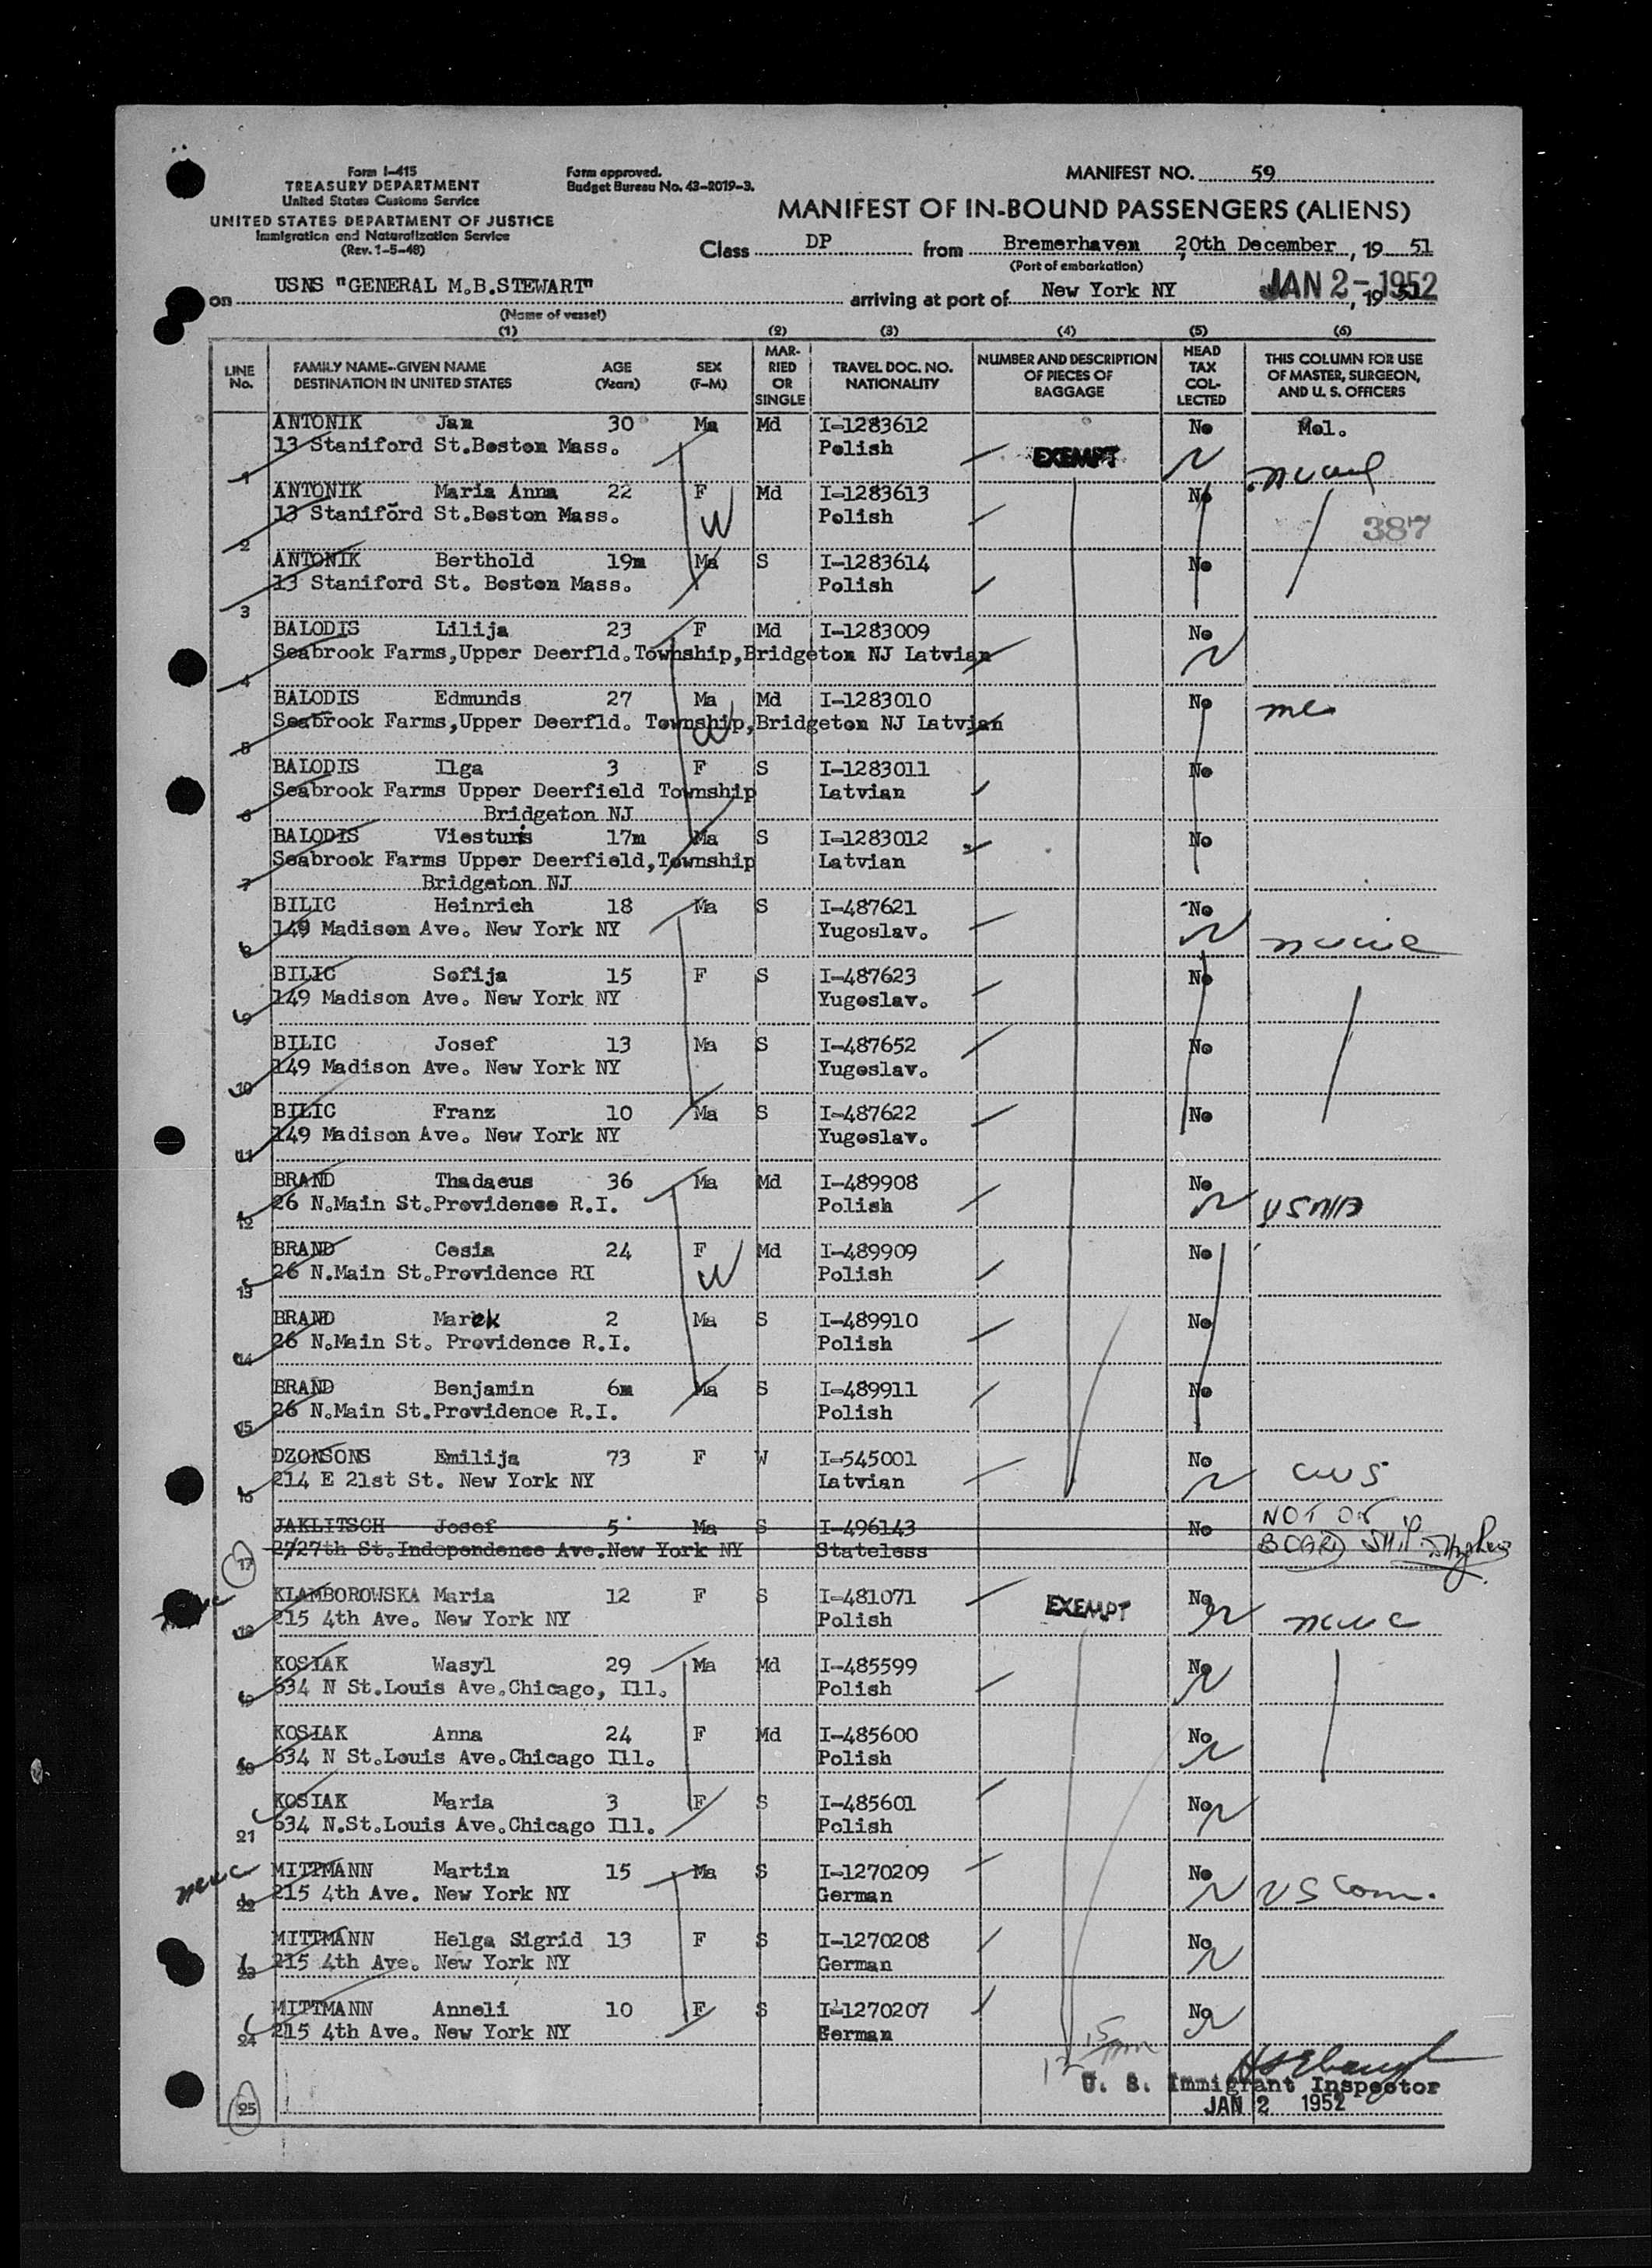 Form I-415
TREASURY DEPARTMENT
United States Customs Service
UNITED STATES DEPARTMENT OF JUSTICE
Immigration and Naturalization Service
(Rev. 1-5-48)
Form approved.
Budget Bureau No. 43-2019-3.
MANIFEST NO. 59
MANIFEST OF IN-BOUND PASSENGERS (ALIENS)
Class DP from Bremerhaven, 20th December, 19 51
(Port of embarkation)
on USNS "GENERAL M.B.STEWART" arriving at port of New York NY JAN 2-1952, 19
(Name of vessel)
(1) (2) (3) (4) (5) (6)
LINE No. FAMILY NAME--GIVEN NAME DESTINATION IN UNITED STATES AGE (Years) SEX (F-M) MARRIED OR SINGLE TRAVEL DOC. NO. NATIONALITY NUMBER AND DESCRIPTION OF PIECES OF BAGGAGE HEAD TAX COLLECTED THIS COLUMN FOR USE OF MASTER, SURGEON, AND U. S. OFFICERS
ANTONIK Jan 30 Ma Md I-1283612 No Mel.
13 Staniford St.Boston Mass. Polish EXEMPT
1
ANTONIK Maria Anna 22 F Md I-1283613 No
13 Staniford St.Boston Mass. W Polish 387
2
ANTONIK Berthold 19m Ma S I-1283614 No
13 Staniford St. Boston Mass. Polish
3
BALODIS Lilija 23 F Md I-1283009 No
Seabrook Farms,Upper Deerfld.Township,Bridgeton NJ Latvian
4
BALODIS Edmunds 27 Ma Md I-1283010 No
Seabrook Farms,Upper Deerfld. Township,Bridgeton NJ Latvian
5
BALODIS Ilga 3 F S I-1283011 No
Seabrook Farms Upper Deerfield Township Latvian
6 Bridgeton NJ
BALODIS Viesturis 17m Ma S I-1283012 No
Seabrook Farms Upper Deerfield,Township Latvian
7 Bridgeton NJ
BILIC Heinrich 18 Ma S I-487621 No
149 Madison Ave. New York NY Yugoslav.
8
BILIC Sofija 15 F S I-487623 No
149 Madison Ave. New York NY Yugoslav.
9
BILIC Josef 13 Ma S I-487652 No
149 Madison Ave. New York NY Yugoslav.
10
BILIC Franz 10 Ma S I-487622 No
149 Madison Ave. New York NY Yugoslav.
11
BRAND Thadaeus 36 Ma Md I-489908 No
26 N.Main St.Providence R.I. Polish
12
BRAND Cesia 24 F Md I-489909 No
26 N.Main St.Providence RI W Polish
13
BRAND Marek 2 Ma S I-489910 No
26 N.Main St. Providence R.I. Polish
14
BRAND Benjamin 6m Ma S I-489911 No
26 N.Main St.Providence R.I. Polish
15
DZONSONS Emilija 73 F W I-545001 No
214 E 21st St. New York NY Latvian CWS
16
JAKLITSCH Josef 5 Ma S I-496143 No NOT ON
2727th St.Independence Ave.New York NY Stateless BOARD SHIP
17
KLAMBOROWSKA Maria 12 F S I-481071 No
215 4th Ave. New York NY Polish EXEMPT
18
KOSIAK Wasyl 29 Ma Md I-485599 No
634 N St.Louis Ave.Chicago, Ill. Polish
19
KOSIAK Anna 24 F Md I-485600 No
634 N St.Louis Ave.Chicago Ill. Polish
20
KOSIAK Maria 3 F S I-485601 No
634 N.St.Louis Ave.Chicago Ill. Polish
21
MITTMANN Martin 15 Ma S I-1270209 No
215 4th Ave. New York NY German US Com.
22
MITTMANN Helga Sigrid 13 F S I-1270208 No
215 4th Ave. New York NY German
23
MITTMANN Anneli 10 F S I-1270207 No
215 4th Ave. New York NY German
24
U. S. Immigrant Inspector
25 JAN 2 1952